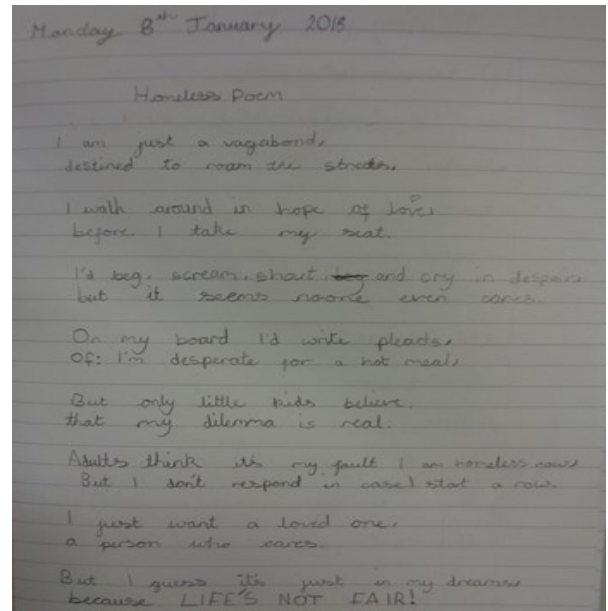 Monday 8th January 2018
Homeless Poem
I am just a vagabond,
destined to roam the streets.
I walk around in hope of love,
before I take my seat.
I'd beg, scream, shout, beg and cry in despair,
but it seems noone even cares.
On my board I'd write pleads,
Of: I'm desperate for a hot meal,
But only little kids believe.
that my dilemma is real.
Adults think its my fault I am homeless now,
But I don't respond in case I start a row.
I just want a loved one,
a person who cares.
But I guess its just in my dreams,
because LIFE'S NOT FAIR!